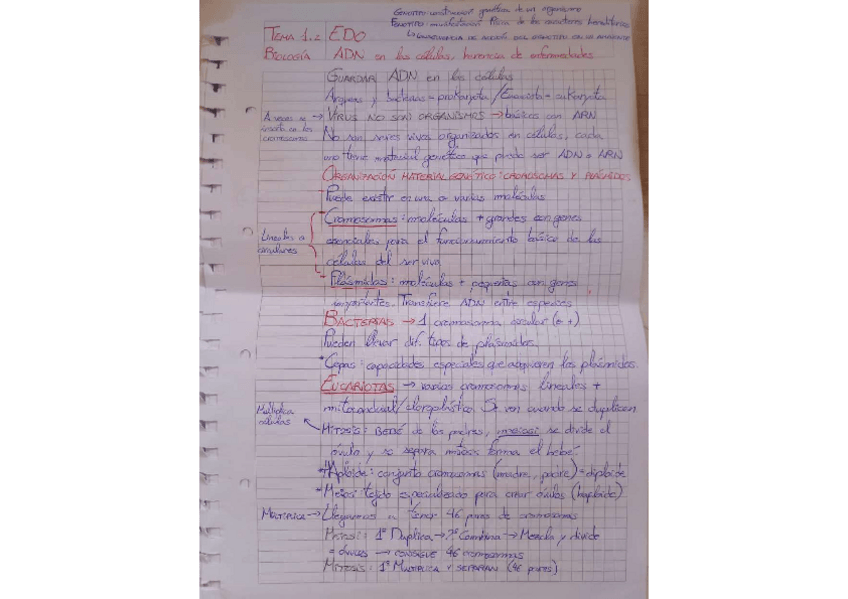 GENOTIPO: constitución genética de un organismo
FENOTIPO: manifestación física de los caracteres hereditarios
DEL GENOTIPO EN UN AMBIENTE
TEMA 1.= EDO
BIOLOGÍA ADN en las células, herencia de enfermedades
GUARDAR ADN en las células
Arqueas y bacterias = prokaryota / Eucariota = eukaryota
A veces se → VIRUS NO SON ORGANISMOS → básicos con ARN
inserta en los
cromosomas
No son seres vivos organizados en células, cada
uno tiene material genético que puede ser ADN o ARN
ORGANIZACIÓN MATERIAL GENÉTICO: CROMOSOMAS Y PLÁSMIDOS
Puede existir en una o varias moléculas
Cromosomas: moléculas + grandes con genes
Lineales o
circulares
esenciales para el funcionamiento básico de las
células del ser vivo
Plásmidos: moléculas + pequeñas con genes
importantes. Transfiere ADN entre especies
BACTERIAS → 1 cromosoma circular (o +)
Pueden llevar dif. tipos de plásmidos.
*Cepas: capacidades especiales que adquieren los plásmidos.
EUCARIOTAS → varios cromosomas lineales +
mitocondrial/cloroplástico. Se ven cuando se duplican
Multiplica
células
MITOSIS: BEBÉ de los padres, se divide el
óvulo y se separa mitosis forma el bebé.
*Haploide: conjunto cromosomas (madre, padre) = diploide
tejido especializado para crear óvulos (haploide)
MULTIPLICA → Llegamos a tener 46 pares de cromosomas
1º Duplica → 2º Combina → Mezcla y divide
→ CONSIGUE 46 cromosomas
MITOSIS: 1º MULTIPLICA Y SEPARAN (46 pares)